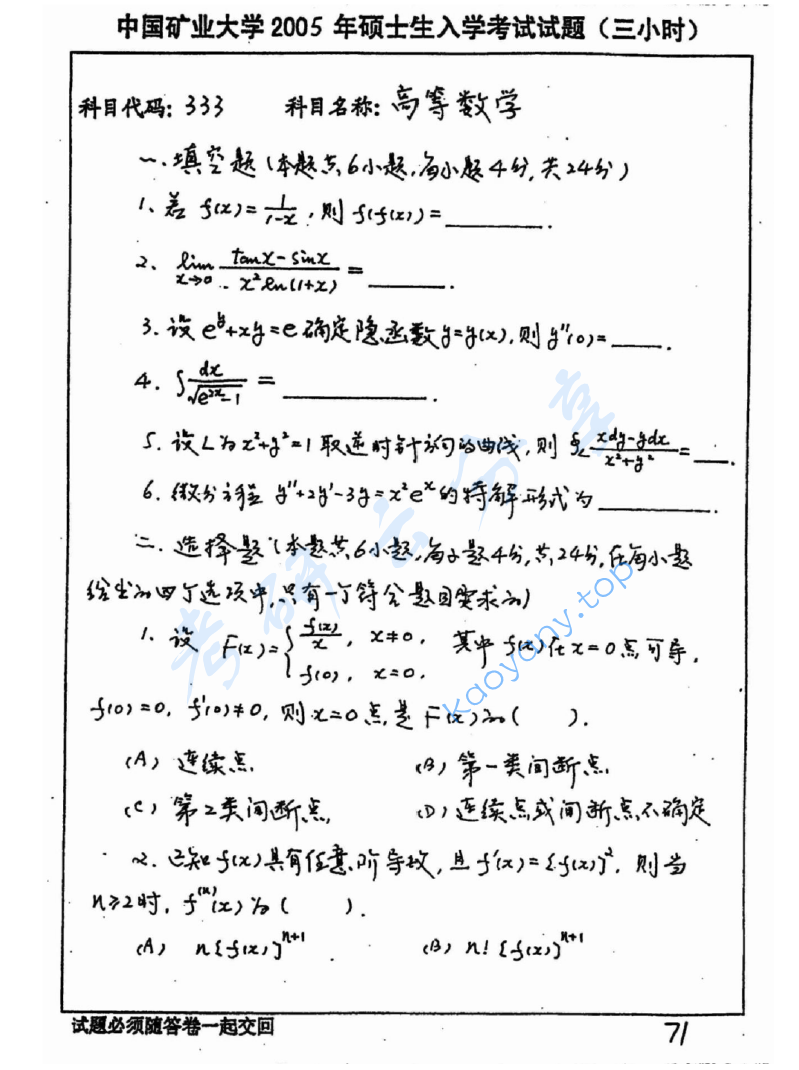 中国矿业大学 2005 年硕士生入学考试试题（三小时）
科目代码: 333 科目名称: 高等数学
一、填空题（本题共6小题，每小题4分，共24分）
1、若 f(x)=1/(1-x)，则 f(f(x))=______.
2、lim_{x→0} (tanx-sinx)/(x²ln(1+x)) =______.
3. 设 e^y+xy=e 确定隐函数 y=y(x)，则 y''(0)=____.
4. ∫dx/√(e^{2x}-1) =________.
5. 设L为 x²+y²=1 取逆时针方向的曲线，则 ∮_L (xdy-ydx)/(x²+y²)=___.
6. 微分方程 y''+2y'-3y=x²e^x 的特解形式为________.
二、选择题（本题共6小题，每小题4分，共24分，在每小题
给出的四个选项中，只有一个符合题目要求的）
1、设 F(x)={f(x)/x， x≠0， f(0)， x=0. 其中 f(x) 在 x=0 点可导，
f(0)=0，f'(0)≠0，则 x=0 点是 F(x) 的（ ）.
(A) 连续点. (B) 第一类间断点.
(C) 第2类间断点. (D) 连续点或间断点不确定
2、已知 f(x) 具有任意阶导数，且 f'(x)={f(x)}²，则当
n≥2时，f^{(n)}(x) 为（ ）.
(A) n{f(x)}^{n+1} (B) n!{f(x)}^{n+1}
试题必须随答卷一起交回
71
考研云分享
kaoyany.top